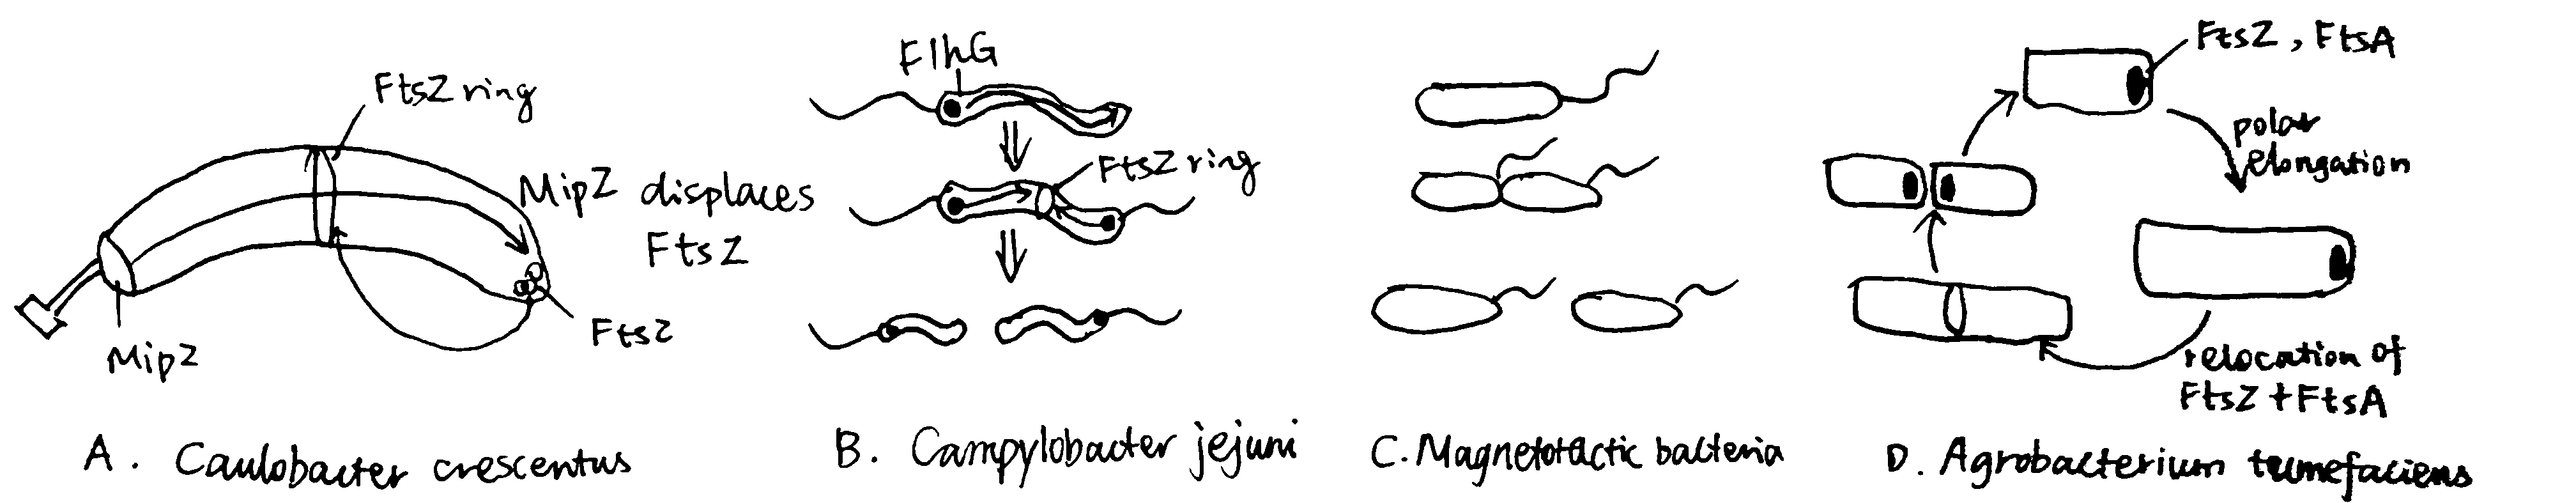 FtsZ ring
MipZ displaces
FtsZ
FtsZ
MipZ
A. Caulobacter crescentus
FlhG
FtsZ ring
B. Campylobacter jejuni
C. Magnetotactic bacteria
FtsZ, FtsA
polar
elongation
relocation of
FtsZ + FtsA
D. Agrobacterium tumefaciens